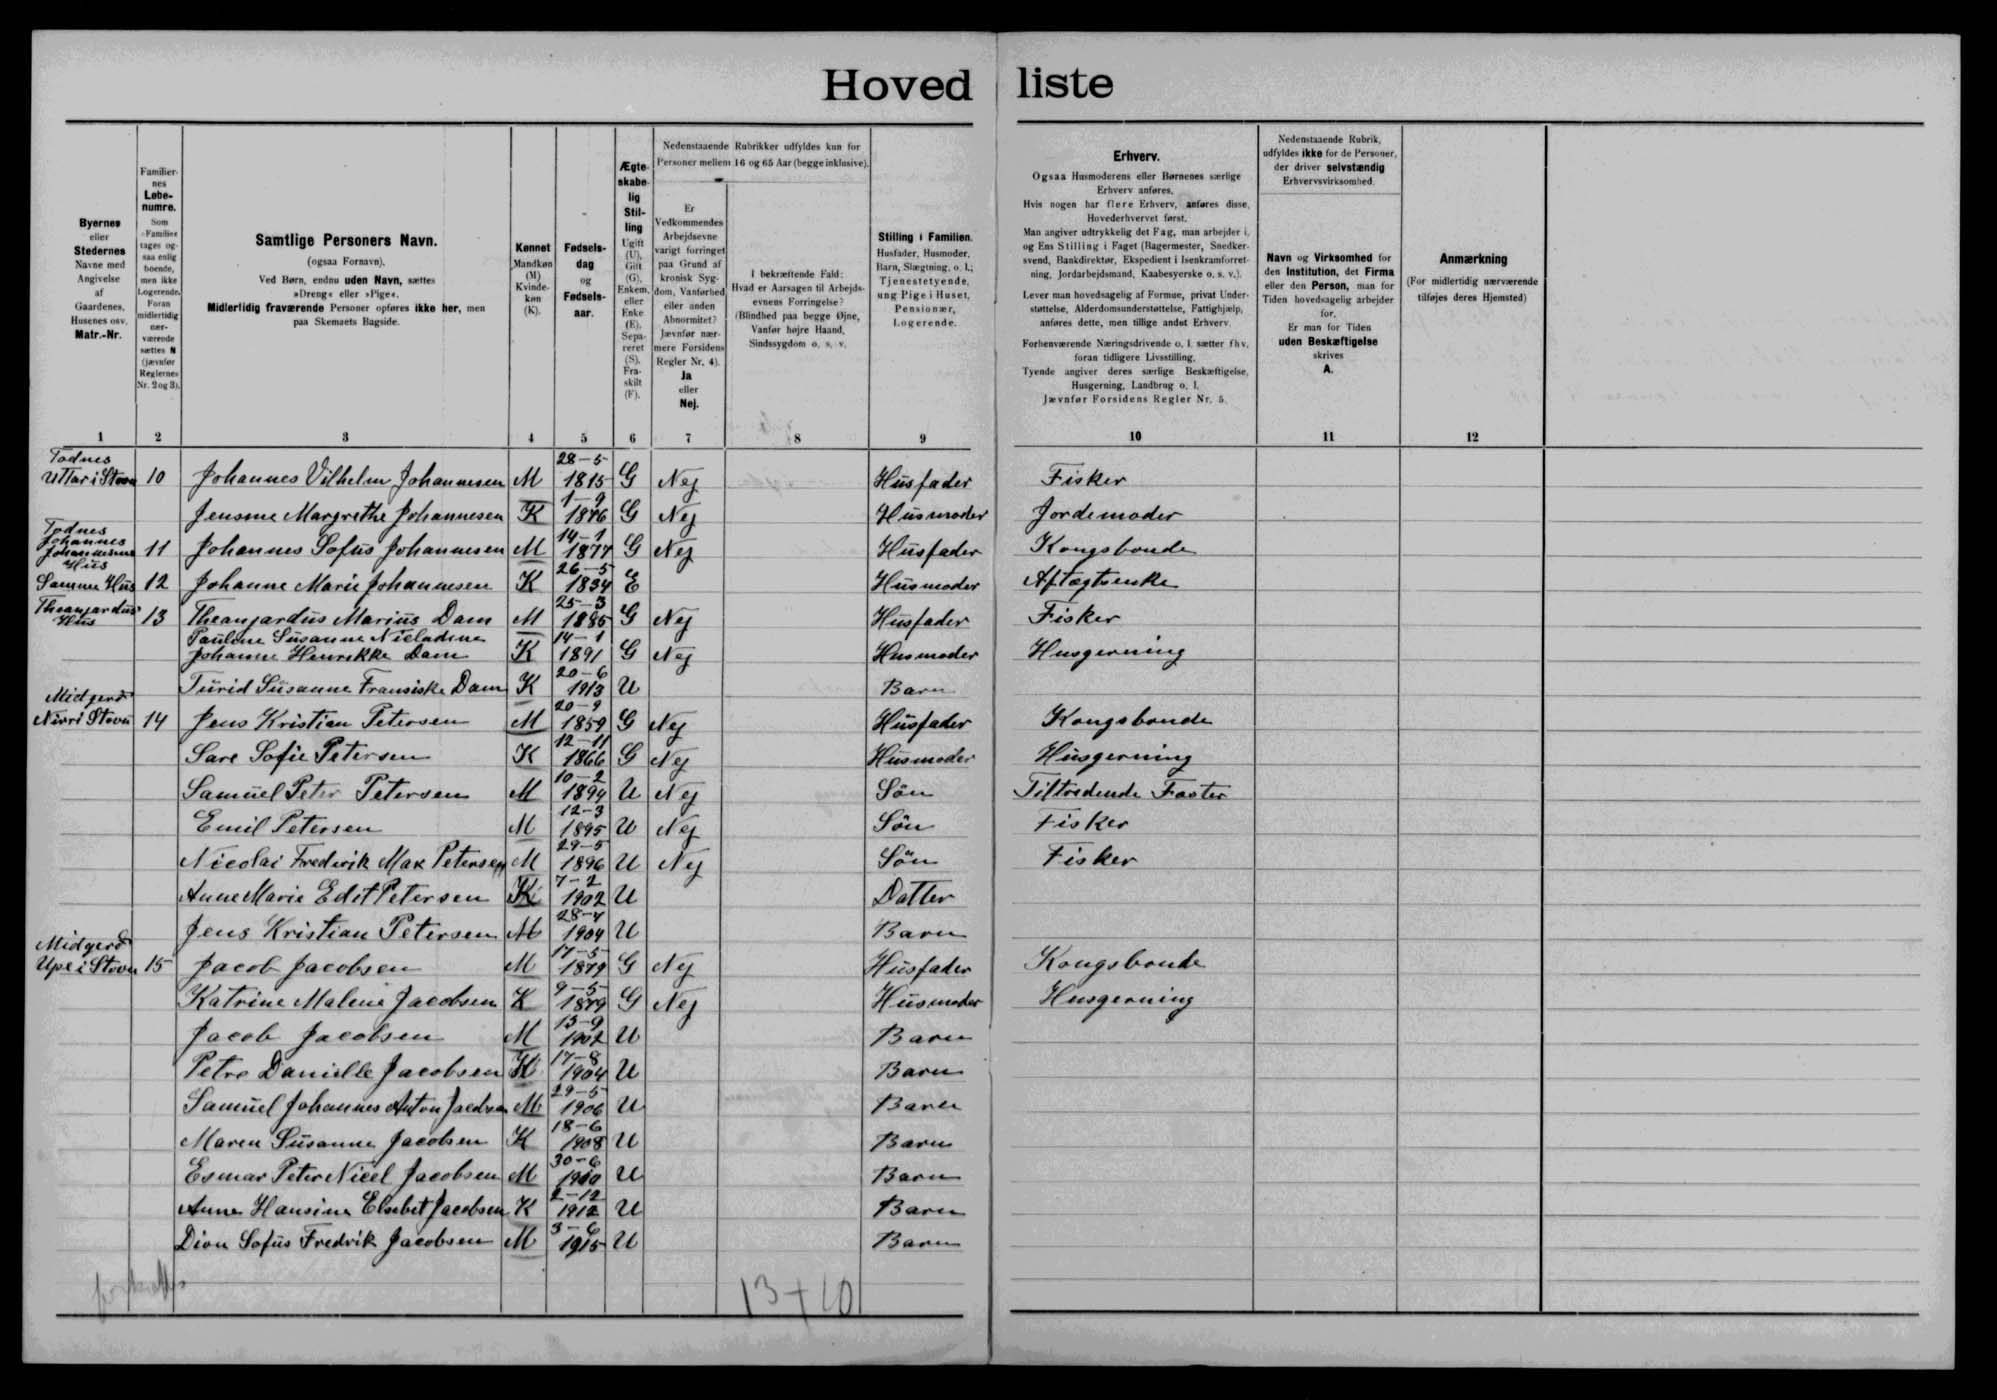 Hoved liste
Byernes
eller
Stedernes
Navne med
Angivelse
af
Gaardenes,
Husenes osv.
Matr.-Nr.
Familier-
nes
Løbe-
numre.
Som
»Familie«
tages og-
saa enlig
boende,
men ikke
Logerende.
Foran
midlertidig
nær-
værende
sættes N
(jævnfør
Reglernes
Nr. 2 og 3).
Samtlige Personers Navn.
(ogsaa Fornavn).
Ved Børn, endnu uden Navn, sættes
»Dreng« eller »Pige«.
Midlertidig fraværende Personer opføres ikke her, men
paa Skemaets Bagside.
Kønnet
Mandkøn
(M)
Kvinde-
køn
(K).
Fødsels-
dag
og
Fødsels-
aar.
Ægte-
skabe-
lig
Stil-
ling
Ugift
(U),
Gift
(G),
Enkem.
eller
Enke
(E),
Sepa-
reret
(S),
Fra-
skilt
(F).
Nedenstaaende Rubrikker udfyldes kun for
Personer mellem 16 og 65 Aar (begge inklusive).
Er
Vedkommendes
Arbejdsevne
varigt forringet
paa Grund af
kronisk Syg-
dom, Vanførhed
eller anden
Abnormitet?
Jævnfør nær-
mere Forsidens
Regler Nr. 4).
Ja
eller
Nej.
I bekræftende Fald:
Hvad er Aarsagen til Arbejds-
evnens Forringelse?
(Blindhed paa begge Øjne,
Vanfør højre Haand,
Sindssygdom o. s. v.
Stilling i Familien.
Husfader, Husmoder,
Barn, Slægtning, o. l.;
Tjenestetyende,
ung Pige i Huset,
Pensionær,
Logerende.
Erhverv.
Ogsaa Husmoderens eller Børnenes særlige
Erhverv anføres.
Hvis nogen har flere Erhverv, anføres disse,
Hovederhvervet først.
Man angiver udtrykkelig det Fag, man arbejder i,
og Ens Stilling i Faget (Bagermester, Snedker-
svend, Bankdirektør, Ekspedient i Isenkramforret-
ning, Jordarbejdsmand, Kaabesyerske o. s. v.).
Lever man hovedsagelig af Formue, privat Under-
støttelse, Alderdomsunderstøttelse, Fattighjælp,
anføres dette, men tillige andet Erhverv.
Forhenværende Næringsdrivende o. l. sætter fhv.
foran tidligere Livsstilling.
Tyende angiver deres særlige Beskæftigelse,
Husgerning, Landbrug o. l.
Jævnfør Forsidens Regler Nr. 5.
Nedenstaaende Rubrik,
udfyldes ikke for de Personer,
der driver selvstændig
Erhvervsvirksomhed.
Navn og Virksomhed for
den Institution, det Firma
eller den Person, man for
Tiden hovedsagelig arbejder
for.
Er man for Tiden
uden Beskæftigelse
skrives
A.
Anmærkning
(For midlertidig nærværende
tilføjes deres Hjemsted)
1 2 3 4 5 6 7 8 9 10 11 12
Todnes 28-5
Uttar i Stovu 10 Johannes Vilhelm Johannesen M 1815 G Nej Husfader Fisker
1-9
Jensine Margrethe Johannesen K 1876 G Nej Husmoder Jordemoder
Todnes
Johannes 14-1
Johannesens 11 Johannes Sofus Johannesen M 1877 G Nej Husfader Kongsbonde
Hus 26-5
Samme Hus 12 Johanne Marie Johannesen K 1834 E Husmoder Aftægtsenke
Theangardus 25-3
Hus 13 Theangardus Marius Dam M 1885 G Nej Husfader Fisker
Pauline Susanne Nicladine 14-1
Johanne Henrikke Dam K 1891 G Nej Husmoder Husgerning
20-6
Turid Susanne Fransiske Dam K 1913 U Barn
Midgerð 20-9
Nirri Stovu 14 Jens Kristian Petersen M 1859 G Nej Husfader Kongsbonde
12-11
Sare Sofie Petersen K 1866 G Nej Husmoder Husgerning
10-2
Samuel Peter Petersen M 1894 U Nej Sön Tiltrædende Fæster
12-3
Emil Petersen M 1895 U Nej Sön Fisker
29-5
Nicolai Frederik Max Petersen M 1896 U Nej Sön Fisker
7-2
Anne Marie Edit Petersen K 1902 U Datter
28-4
Jens Kristian Petersen M 1904 U Barn
Midgerð 17-5
Upe i Stovu 15 Jacob Jacobsen M 1879 G Nej Husfader Kongsbonde
9-5
Katrine Malene Jacobsen K 1879 G Nej Husmoder Husgerning
13-9
Jacob Jacobsen M 1902 U Barn
17-8
Petra Danielle Jacobsen K 1904 U Barn
29-5
Samuel Johannes Anton Jacobsen M 1906 U Barn
18-6
Maren Susanne Jacobsen K 1908 U Barn
30-6
Esmar Peter Nicel Jacobsen M 1910 U Barn
2-12
Anne Hansine Elsebet Jacobsen K 1912 U Barn
3-6
Dion Sofus Fredrik Jacobsen M 1915 U Barn
13+10